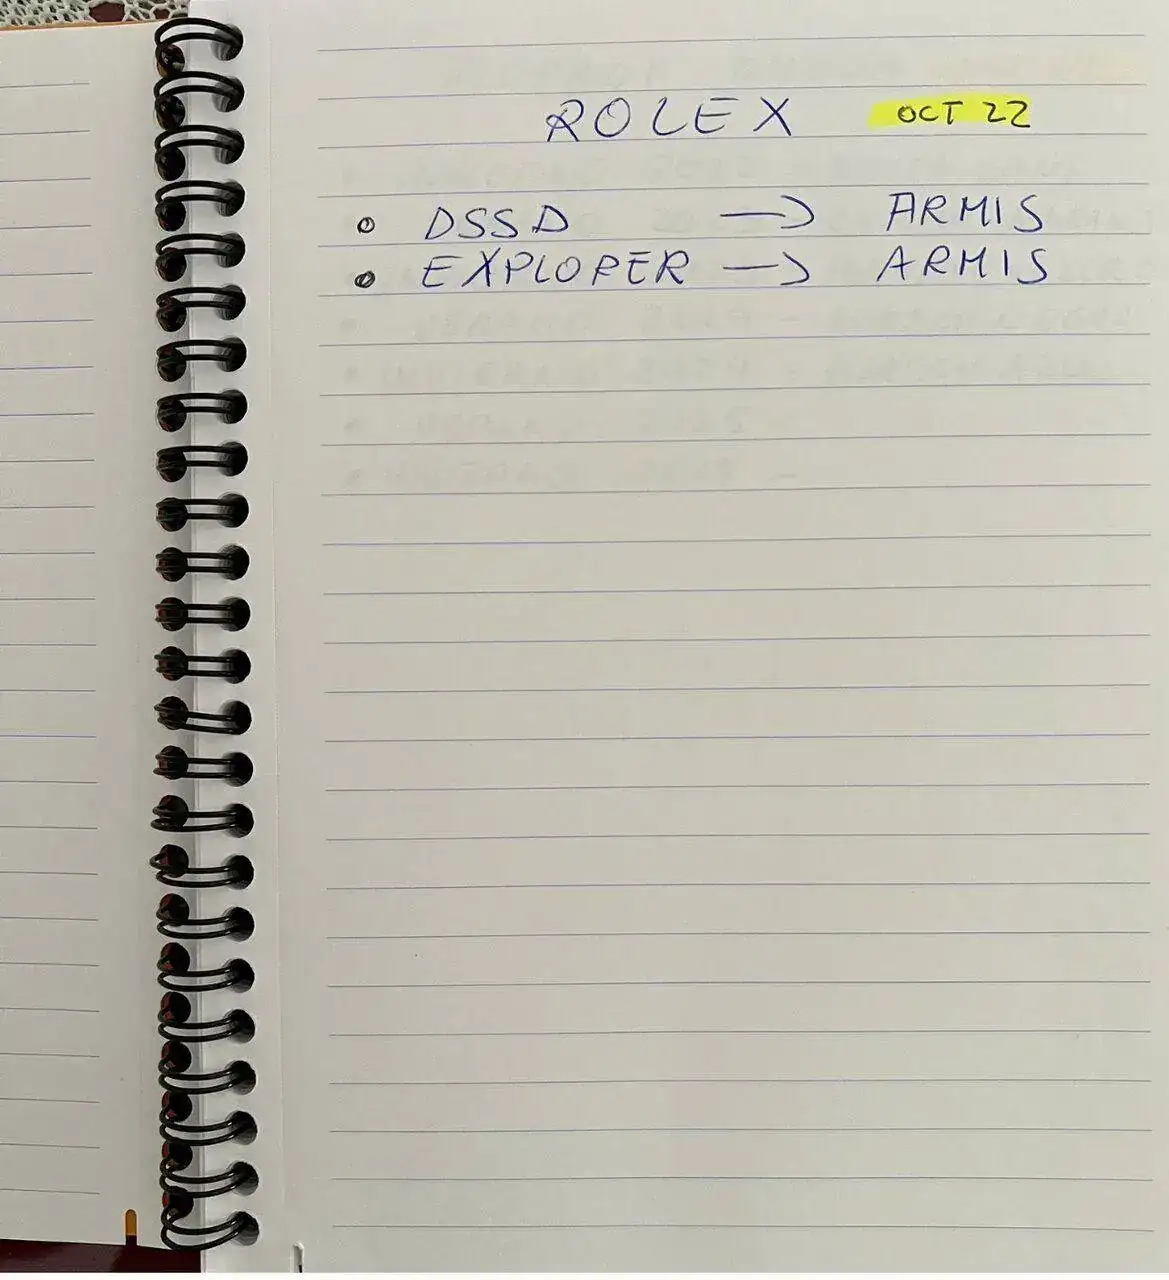 ROLEX OCT 22
• DSSD → ARMIS
• EXPLOPER → ARMIS